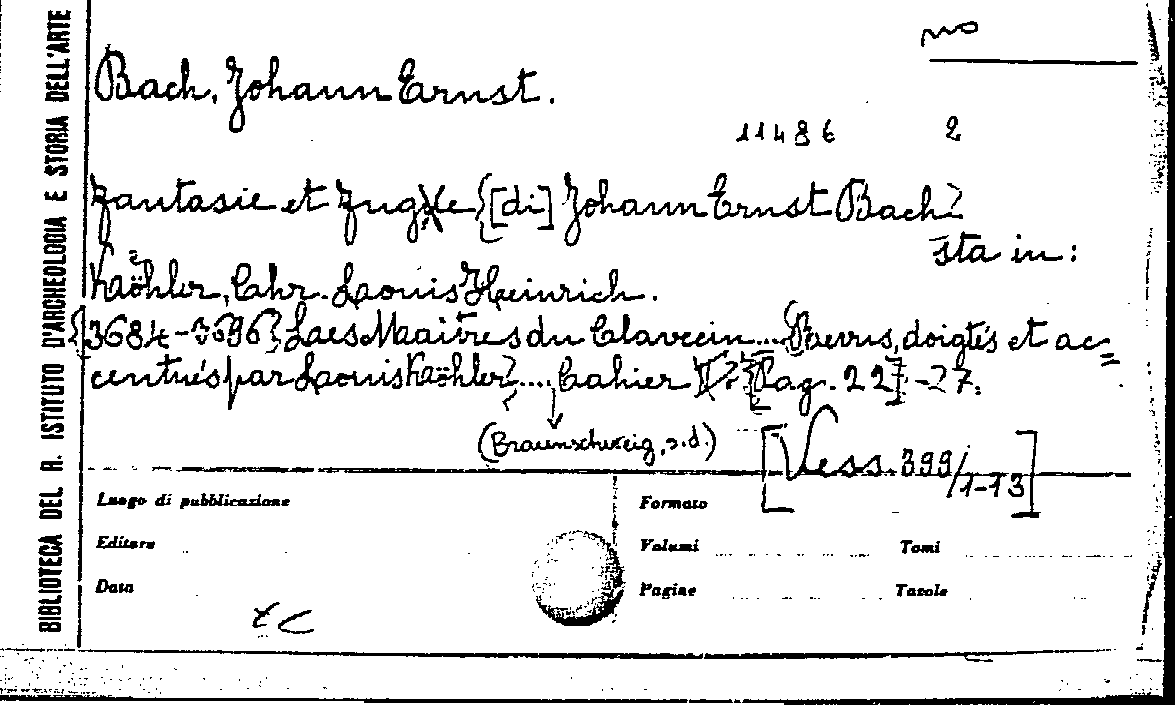 BIBLIOTECA DEL R. ISTITUTO D'ARCHEOLOGIA E STORIA DELL'ARTE
mo
Bach, Johann Ernst.
11486 2
Fantasie et Fugue {[di] Johann Ernst Bach}
sta in:
Köhler, Chr. Louis Heinrich.
{3684-3696} Les Maitres du Clavecin.... Revus, doigtés et ac=
centués par Louis Köhler.... Cahier [Pag. 22]-27.
(Braunschweig, s.d.)
[Vess. 399/1-13]
Luogo di pubblicazione
Formato
Editore
Volumi
Tomi
Data
Pagine
Tavole